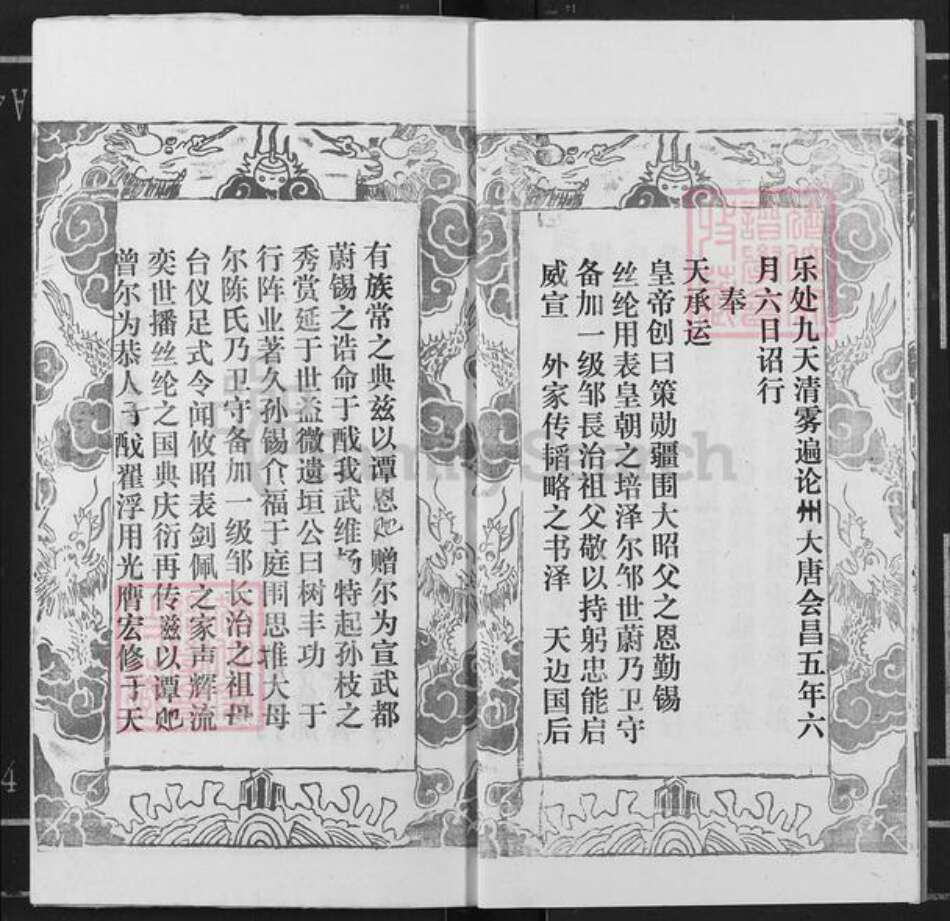 乐处九天清雾遍论州大唐会昌五年六
月六日诏行
奉
天承运
皇帝创曰策勋疆围大昭父之恩勤锡
丝纶用表皇朝之培泽尔邹世蔚乃卫守
备加一级邹長治祖父敬以持躬忠能启
威宣 外家传韬略之书泽 天边国后
有族常之典兹以谭恩貤赠尔为宣武都
蔚锡之诰命于戲我武维扬特起孙枝之
秀赏延于世益微遗垣公曰树丰功 于
行阵业著久孙锡介福于庭围思堆大母
尔陈氏乃卫守备加一级邹长治之祖母
台仪足式令闻攸昭表剑佩之家声辉流
奕世播丝纶之国典庆衍再传兹以谭貤
曾尔为恭人于戲翟浮用光膺宏修于天
FamilySearch